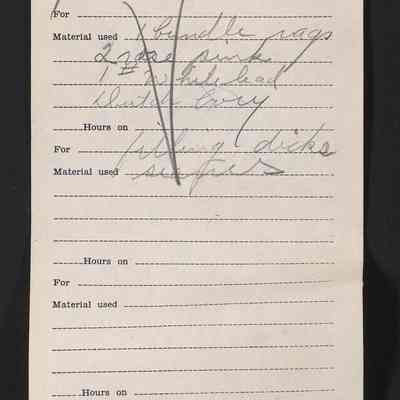 For
Material used 1 bundle rags
2 rose pink
1 # White lead
Dutch Ivory
Hours on
For filling dicks
Material used
Hours on
For
Material used
Hours on